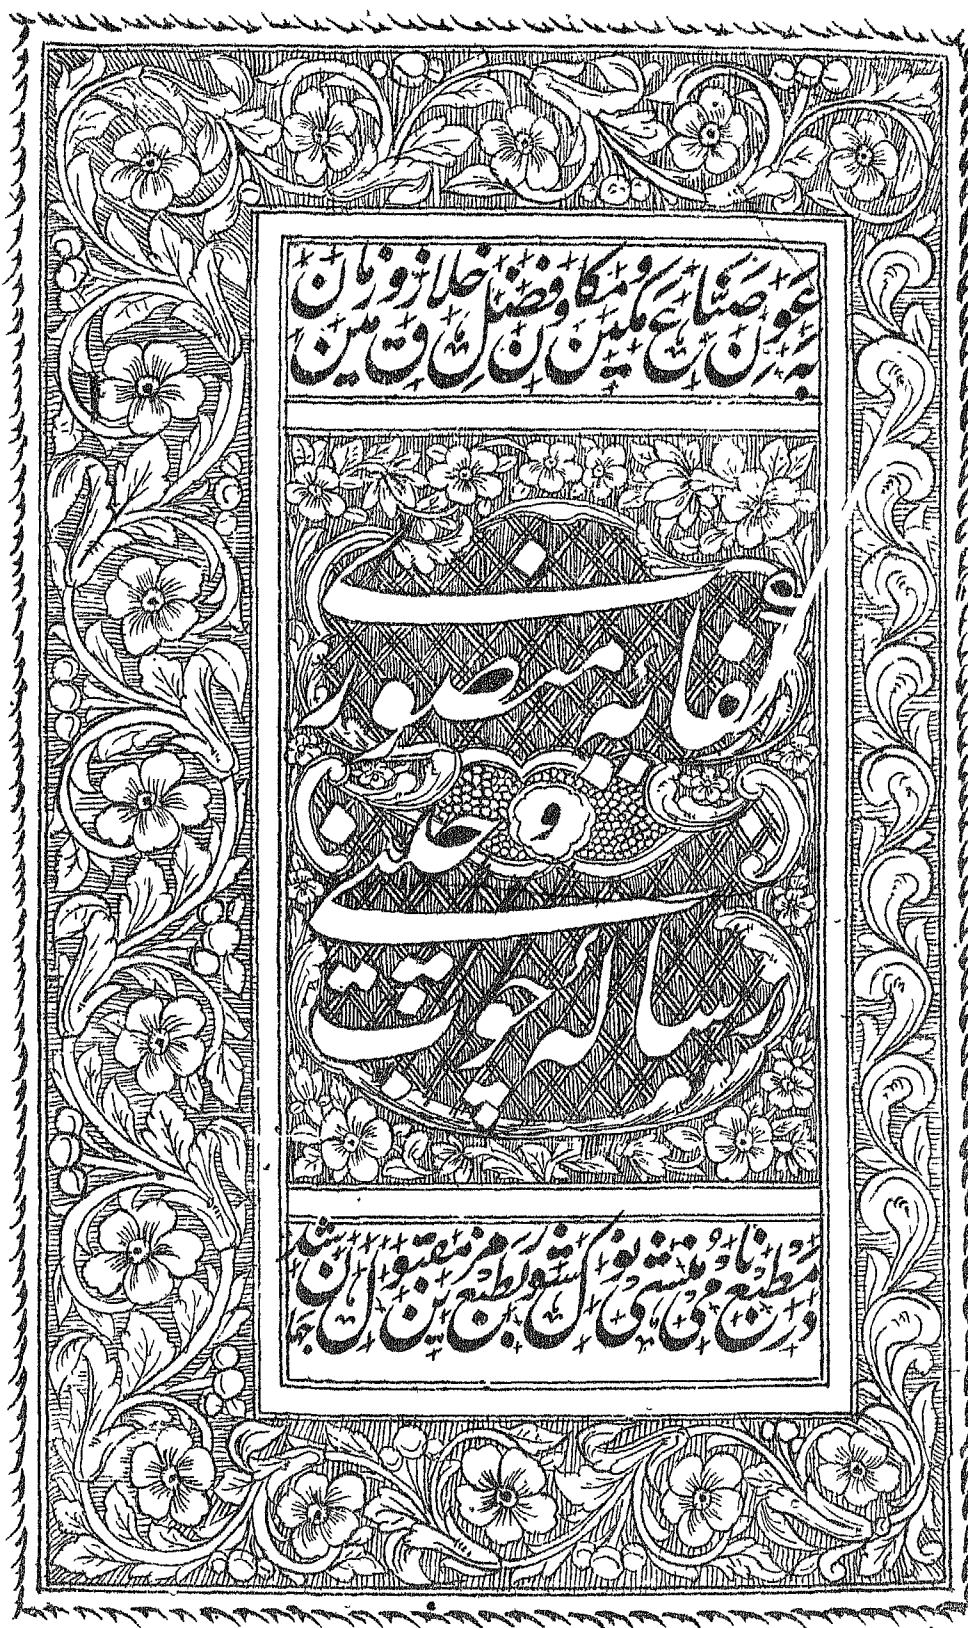 بعون صناع مکین و مکان و فضل خلاق زمین و زمان
کفایه منصوری
و
رساله چوب چینی
در مطبع نامی منشی نولکشور بطبع مزین مقبول جهان شد